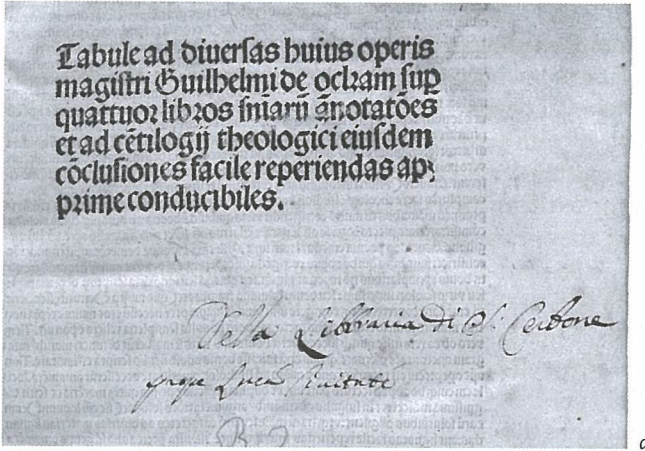 Tabule ad diuersas huius operis
magistri Guilhelmi de ockam sup
quattuor libros sniarũ ãnotatões
et ad cẽtilogij theologici eiusdem
cõclusiones facile reperiendas ap
prime conducibiles.
Della Libbraria di S. Cerbone
prope Lucã